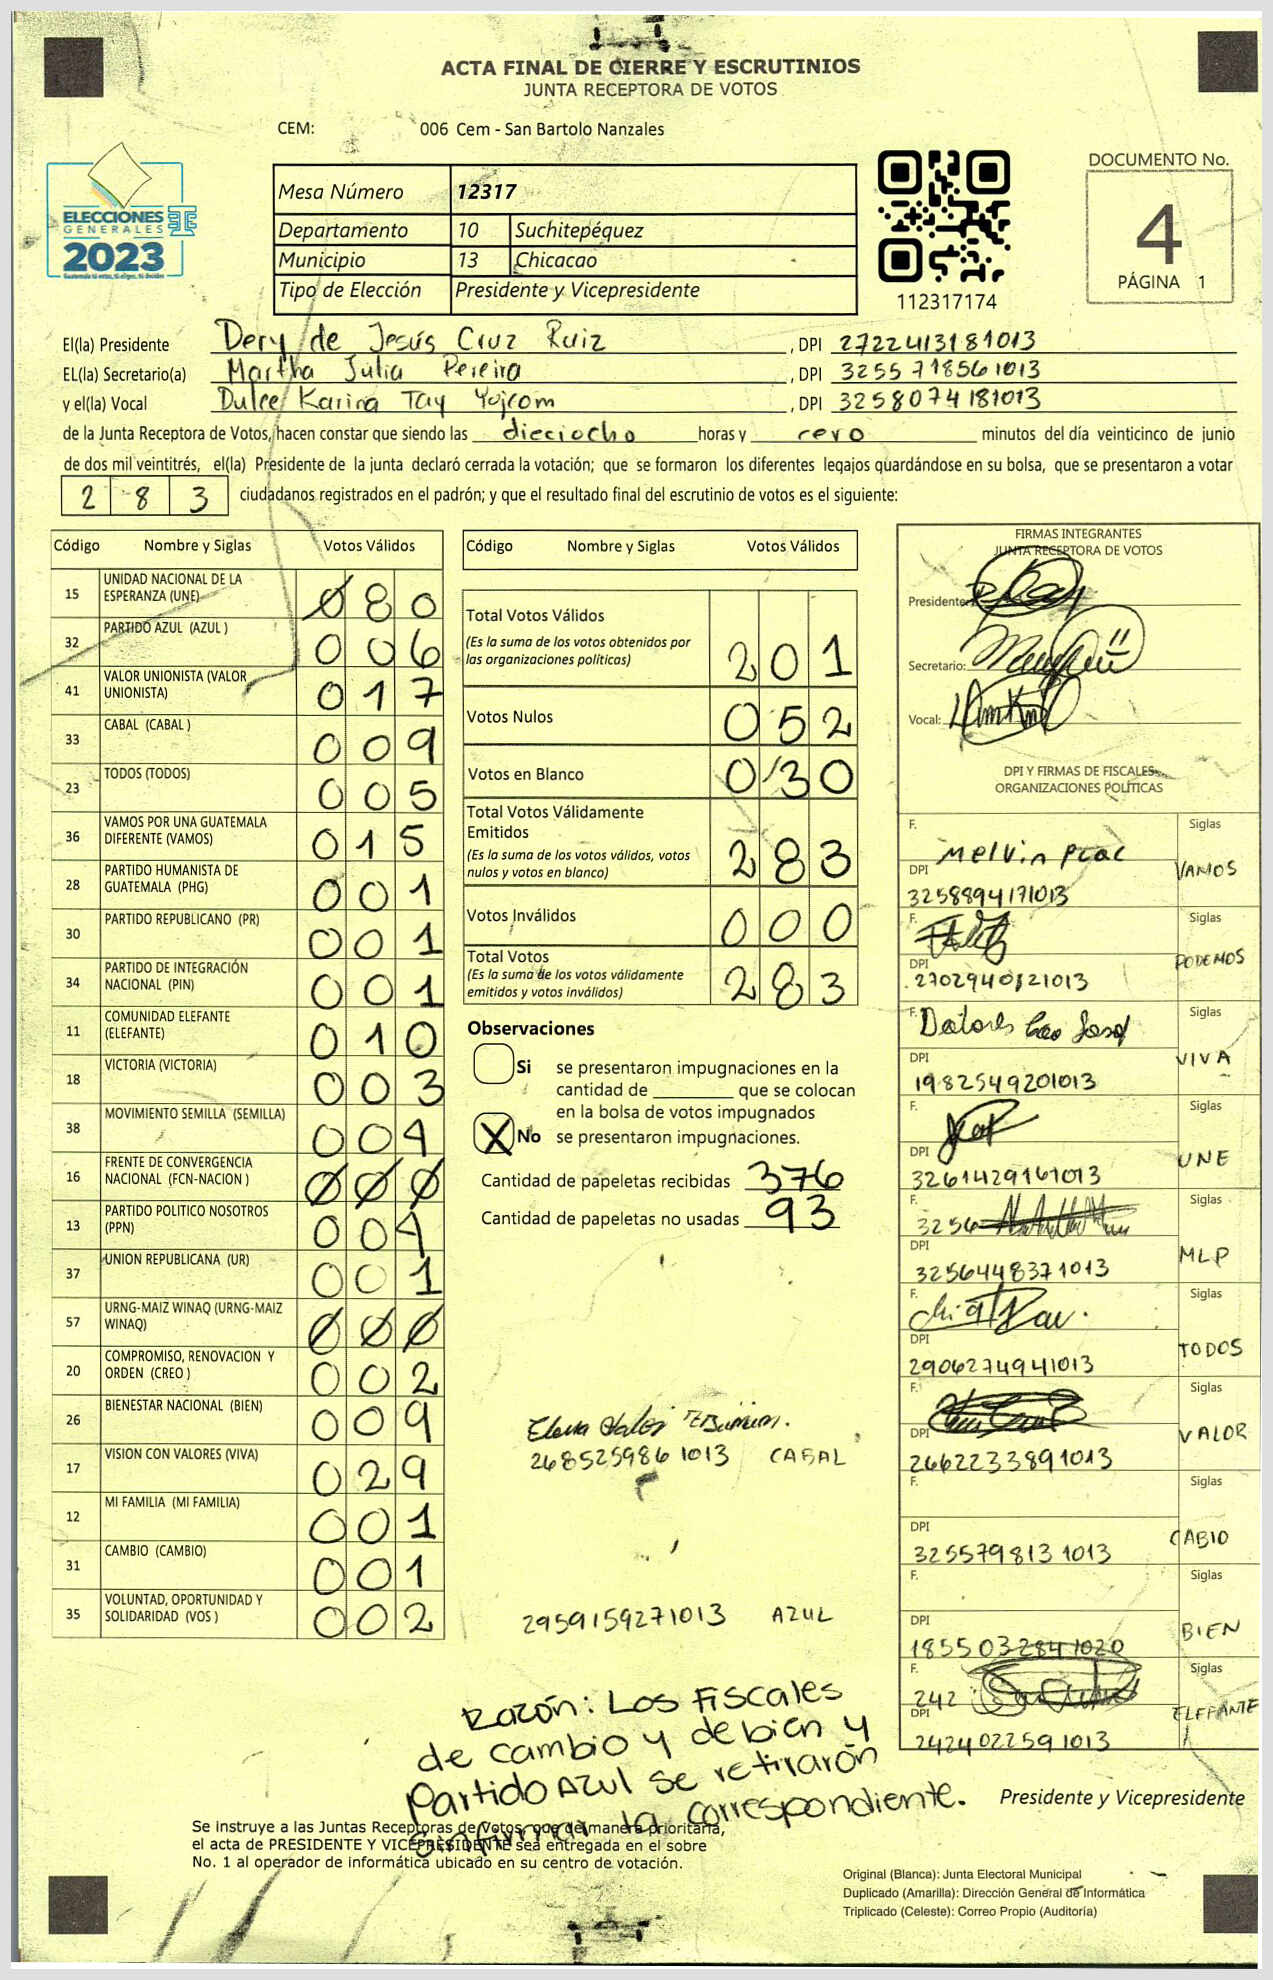 ACTA FINAL DE CIERRE Y ESCRUTINIOS
JUNTA RECEPTORA DE VOTOS
CEM: 006 Cem - San Bartolo Nanzales
ELECCIONES
GENERALES
2023
Mesa Número 12317
Departamento 10 Suchitepéquez
Municipio 13 Chicacao
Tipo de Elección Presidente y Vicepresidente
112317174
DOCUMENTO No.
4
PÁGINA 1
El(la) Presidente Dery de Jesús Cruz Ruiz , DPI 2722413181013
EL(la) Secretario(a) Martha Julia Pereira , DPI 3255718561013
y el(la) Vocal Dulce Karina Tay Yojcom , DPI 3258074181013
de la Junta Receptora de Votos, hacen constar que siendo las dieciocho horas y cero minutos del día veinticinco de junio
de dos mil veintitrés, el(la) Presidente de la junta declaró cerrada la votación; que se formaron los diferentes legajos quardándose en su bolsa, que se presentaron a votar
283 ciudadanos registrados en el padrón; y que el resultado final del escrutinio de votos es el siguiente:
Código Nombre y Siglas Votos Válidos
15 UNIDAD NACIONAL DE LA ESPERANZA (UNE) 080
32 PARTIDO AZUL (AZUL ) 006
41 VALOR UNIONISTA (VALOR UNIONISTA) 017
33 CABAL (CABAL ) 009
23 TODOS (TODOS) 005
36 VAMOS POR UNA GUATEMALA DIFERENTE (VAMOS) 015
28 PARTIDO HUMANISTA DE GUATEMALA (PHG) 001
30 PARTIDO REPUBLICANO (PR) 001
34 PARTIDO DE INTEGRACIÓN NACIONAL (PIN) 001
11 COMUNIDAD ELEFANTE (ELEFANTE) 010
18 VICTORIA (VICTORIA) 003
38 MOVIMIENTO SEMILLA (SEMILLA) 004
16 FRENTE DE CONVERGENCIA NACIONAL (FCN-NACION ) 000
13 PARTIDO POLITICO NOSOTROS (PPN) 004
37 UNION REPUBLICANA (UR) 001
57 URNG-MAIZ WINAQ (URNG-MAIZ WINAQ) 000
20 COMPROMISO, RENOVACION Y ORDEN (CREO ) 002
26 BIENESTAR NACIONAL (BIEN) 009
17 VISION CON VALORES (VIVA) 029
12 MI FAMILIA (MI FAMILIA) 001
31 CAMBIO (CAMBIO) 001
35 VOLUNTAD, OPORTUNIDAD Y SOLIDARIDAD (VOS ) 002
Código Nombre y Siglas Votos Válidos
Total Votos Válidos
(Es la suma de los votos obtenidos por
las organizaciones políticas) 201
Votos Nulos 052
Votos en Blanco 030
Total Votos Válidamente
Emitidos
(Es la suma de los votos válidos, votos
nulos y votos en blanco) 283
Votos Inválidos 000
Total Votos
(Es la suma de los votos válidamente
emitidos y votos inválidos) 283
Observaciones
Si se presentaron impugnaciones en la
cantidad de ________ que se colocan
en la bolsa de votos impugnados
X No se presentaron impugnaciones.
Cantidad de papeletas recibidas 376
Cantidad de papeletas no usadas 93
2685259861013 CABAL
2959159271013 AZUL
Razón: Los Fiscales
de cambio y de bien y
Partido Azul se retirarón
sin firmar la correspondiente.
FIRMAS INTEGRANTES
JUNTA RECEPTORA DE VOTOS
Presidente:
Secretario:
Vocal:
DPI Y FIRMAS DE FISCALES
ORGANIZACIONES POLÍTICAS
F. Melvin Siglas
DPI 3258894171013 VAMOS
F. Siglas
DPI 2702940121013 PODEMOS
F. Dolores Siglas
DPI 1982549201013 VIVA
F. Siglas
DPI 3261429161013 UNE
F. 3256 Siglas
DPI 3256448371013 MLP
F. Siglas
DPI 2906274941013 TODOS
F. Siglas
DPI 2662233891013 VALOR
F. Siglas
DPI 3255798131013 CABIO
F. Siglas
DPI 1855032841020 BIEN
F. 242 Siglas
DPI 2424022591013 ELEFANTE
Presidente y Vicepresidente
Se instruye a las Juntas Receptoras de Votos, que de manera prioritaria,
el acta de PRESIDENTE Y VICEPRESIDENTE sea entregada en el sobre
No. 1 al operador de informática ubicado en su centro de votación.
Original (Blanca): Junta Electoral Municipal
Duplicado (Amarilla): Dirección General de Informática
Triplicado (Celeste): Correo Propio (Auditoría)